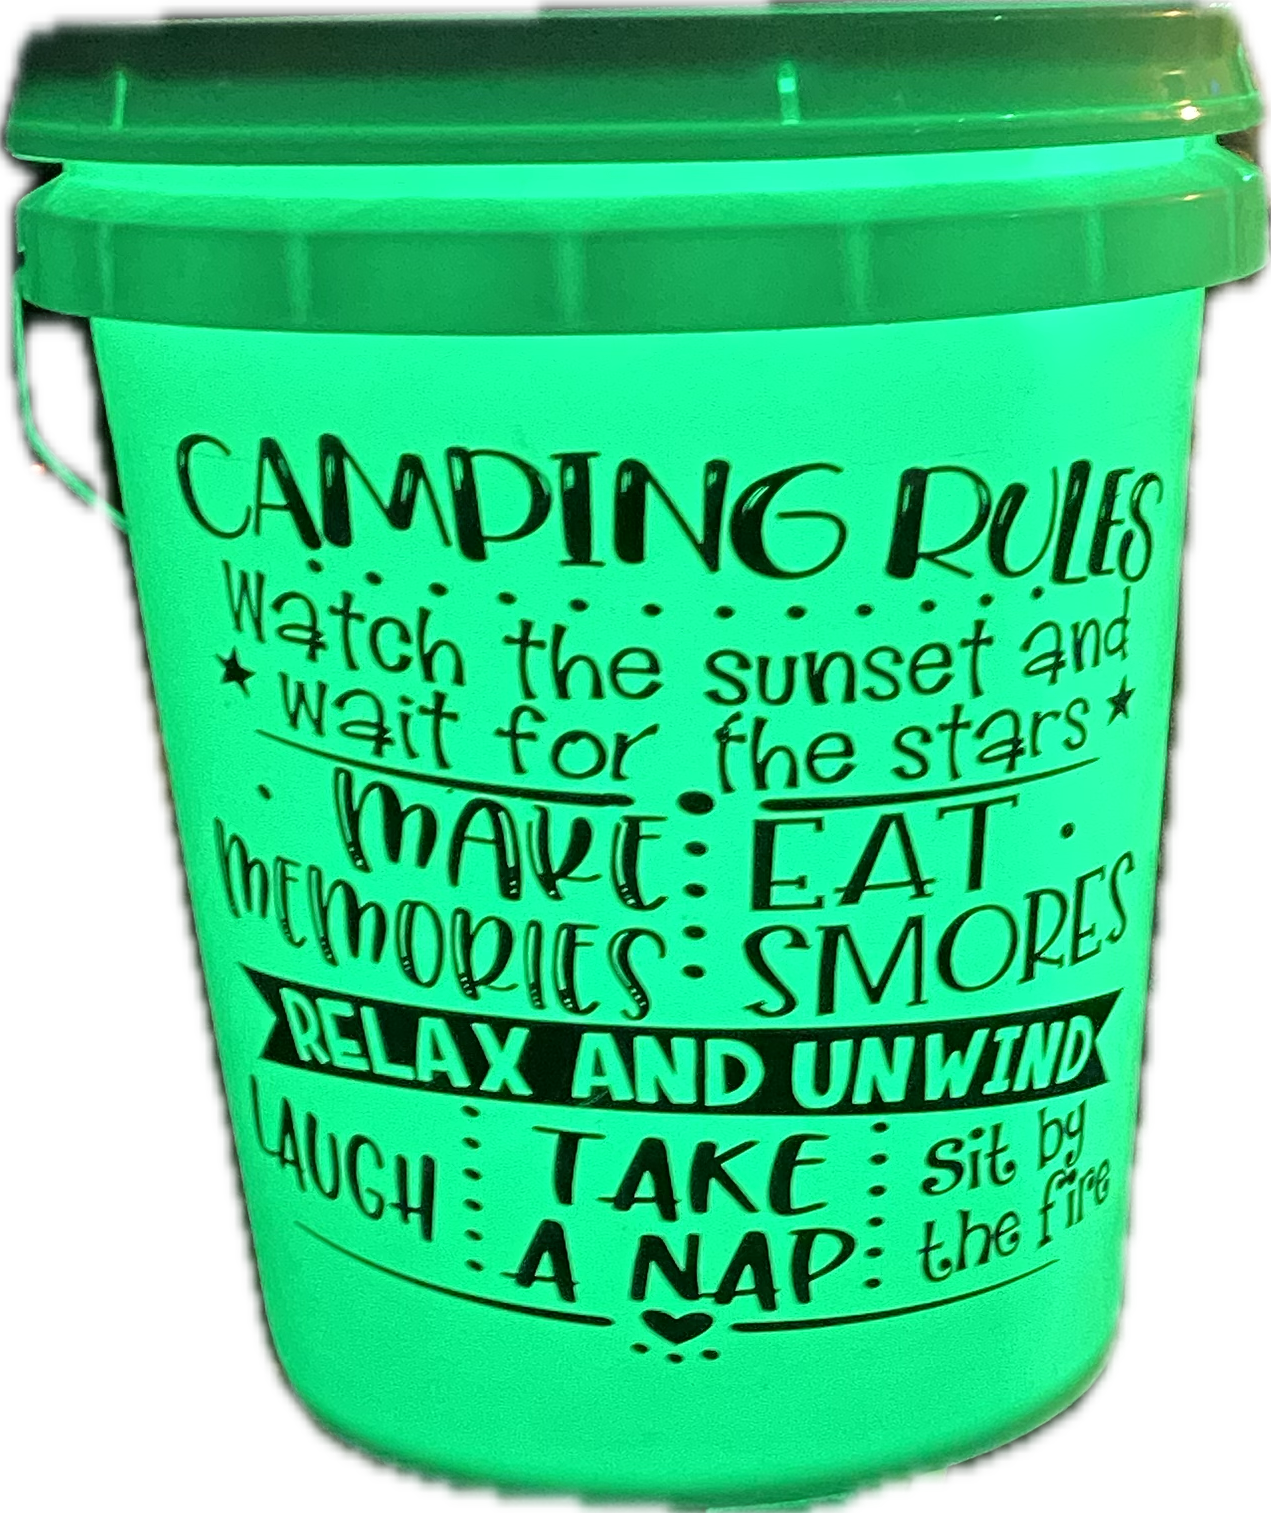 CAMPING RULES
Watch the sunset and
wait for the stars
MAKE
MEMORIES
EAT
SMORES
RELAX AND UNWIND
LAUGH
TAKE
A NAP
sit by
the fire